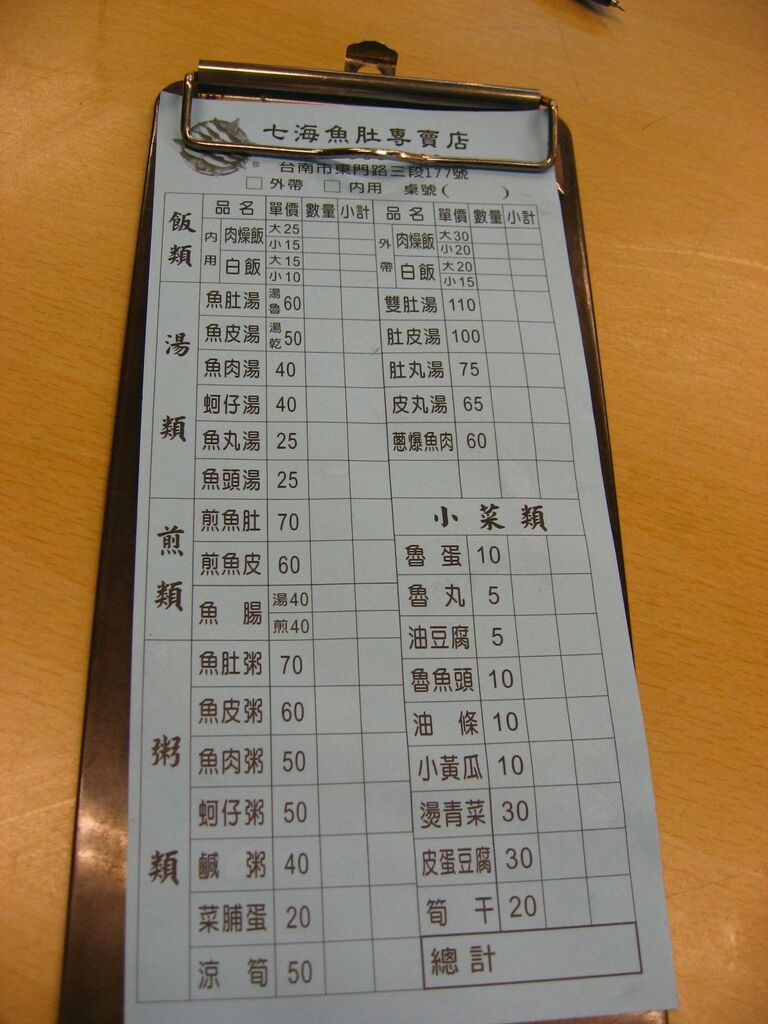 七海魚肚專賣店
®
台南市東門路三段177號
□ 外帶 □ 內用 桌號( )
飯類 品名 單價 數量 小計 品名 單價 數量 小計
內用 肉燥飯 大25 小15 外帶 肉燥飯 大30 小20
白飯 大15 小10 白飯 大20 小15
湯類 魚肚湯 湯魯 60 雙肚湯 110
魚皮湯 湯乾 50 肚皮湯 100
魚肉湯 40 肚丸湯 75
蚵仔湯 40 皮丸湯 65
魚丸湯 25 蔥爆魚肉 60
魚頭湯 25
煎類 煎魚肚 70 小菜類
煎魚皮 60 魯蛋 10
魚腸 湯40 煎40 魯丸 5
粥類 魚肚粥 70 油豆腐 5
魚皮粥 60 魯魚頭 10
魚肉粥 50 油條 10
蚵仔粥 50 小黃瓜 10
鹹粥 40 燙青菜 30
菜脯蛋 20 皮蛋豆腐 30
涼筍 50 筍干 20
總計